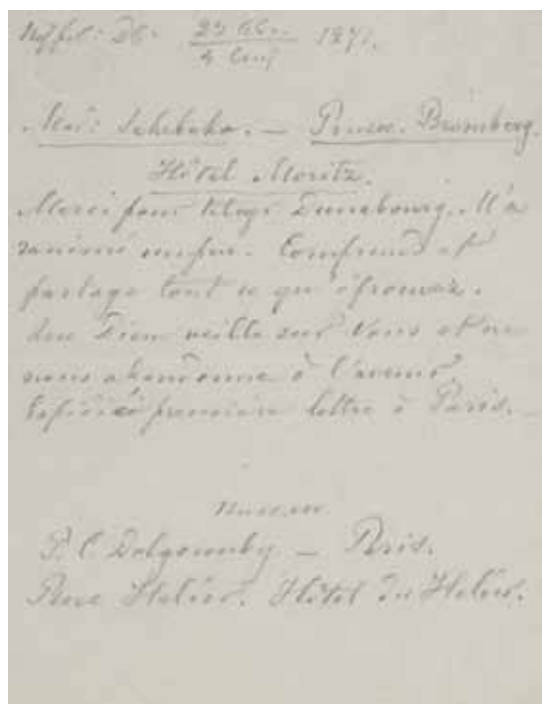 1871.
Schebeko. — Prusse. Bromberg.
Hôtel Moritz.
Merci pour télégr Dunabourg. M'a
ranimé un peu. Comprends et
partage tout ce qu'éprouvez.
Que Dieu veille sur Vous et ne
nous abandonne à l'avenir
première lettre à Paris.
P. C Dolgorouky — Paris.
Rue Helder. Hôtel du Helder.